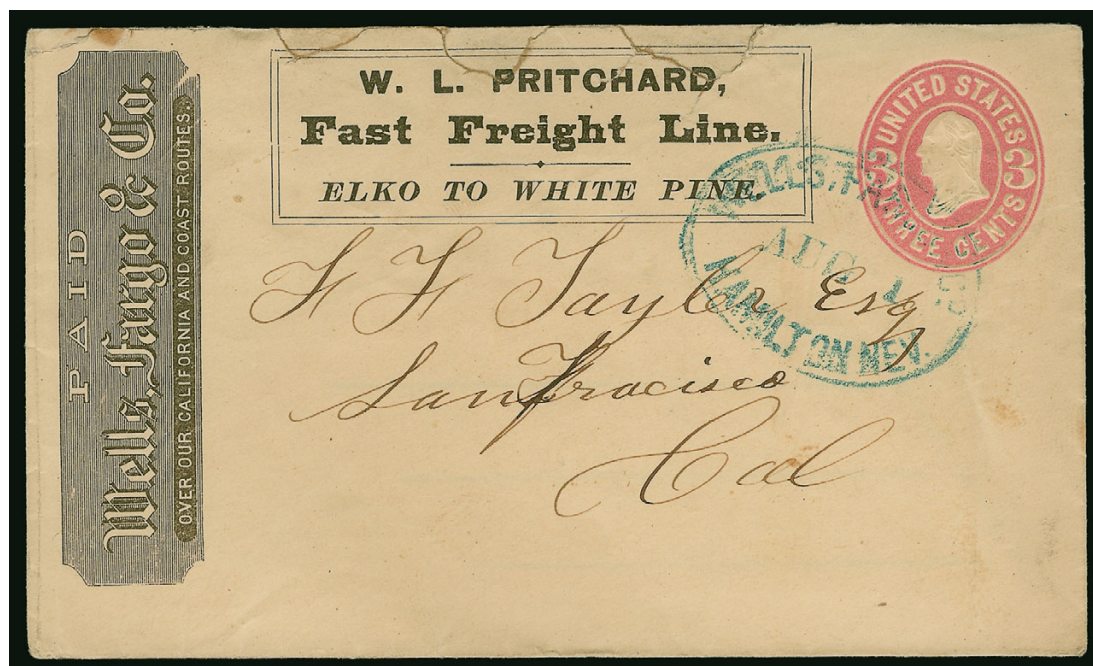 PAID
Wells, Fargo & Co.
OVER OUR CALIFORNIA AND COAST ROUTES.
W. L. PRITCHARD,
Fast Freight Line.
ELKO TO WHITE PINE.
UNITED STATES
3 3
THREE CENTS
WELLS, FA
AUG 1
HAMILTON NEV.
H H Taylor Esq
San Fracisco
Cal